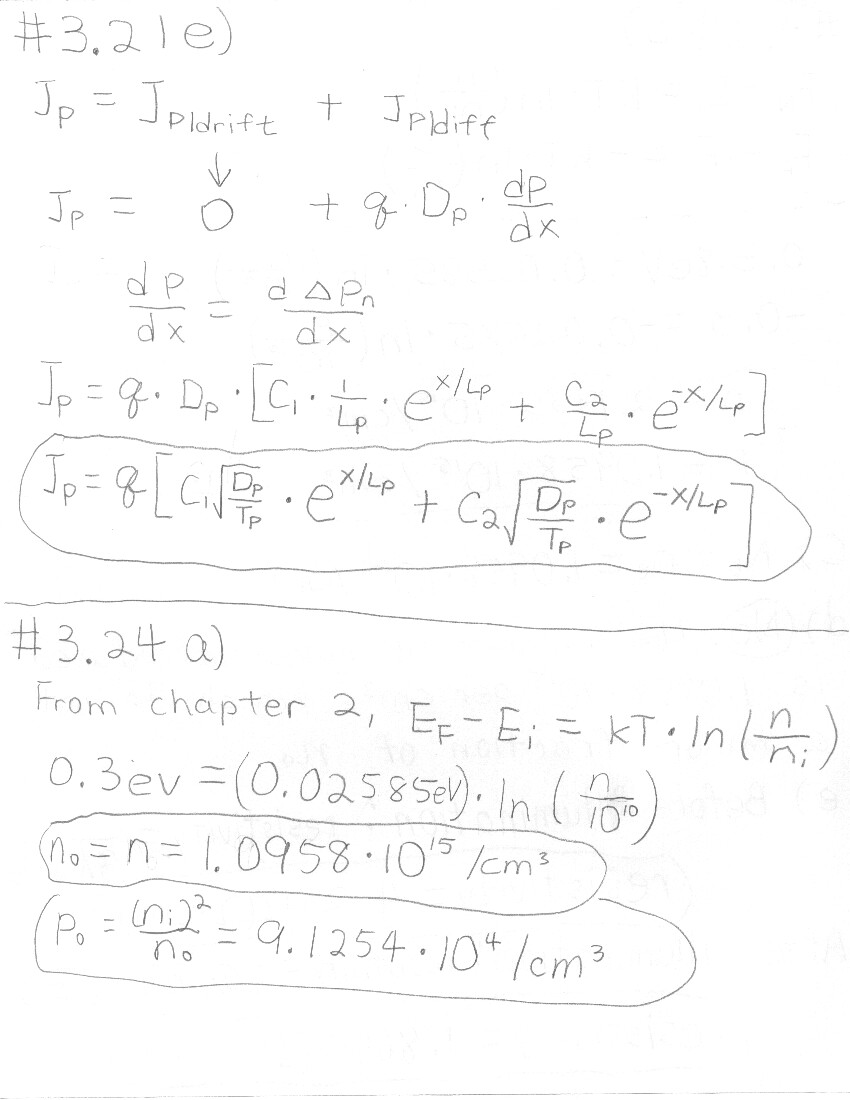 #3.21e)
J_P = J_P|drift + J_P|diff
↓
J_P = 0 + q · D_P · dp/dx
dp/dx = dΔP_n/dx
J_P = q · D_P · [C_1 · 1/L_P · e^(x/L_P) + C_2/L_P · e^(-x/L_P)]
J_P = q[C_1√(D_P/T_P) · e^(x/L_P) + C_2√(D_P/T_P) · e^(-x/L_P)]
#3.24 a)
From chapter 2, E_F - E_i = kT · ln(n/n_i)
0.3ev = (0.02585eV) · ln(n/10^10)
n_0 = n = 1.0958 · 10^15 /cm^3
p_0 = (n_i)^2/n_0 = 9.1254 · 10^4 /cm^3